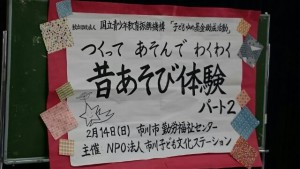 独立行政法人 国立青少年教育振興機構 「子どもゆめ基金助成活動」
つくって あそんで わくわく
昔あそび体験
パート2
2月14日(日) 市川市 勤労福祉センター
主催 NPO法人 市川子ども文化ステーション